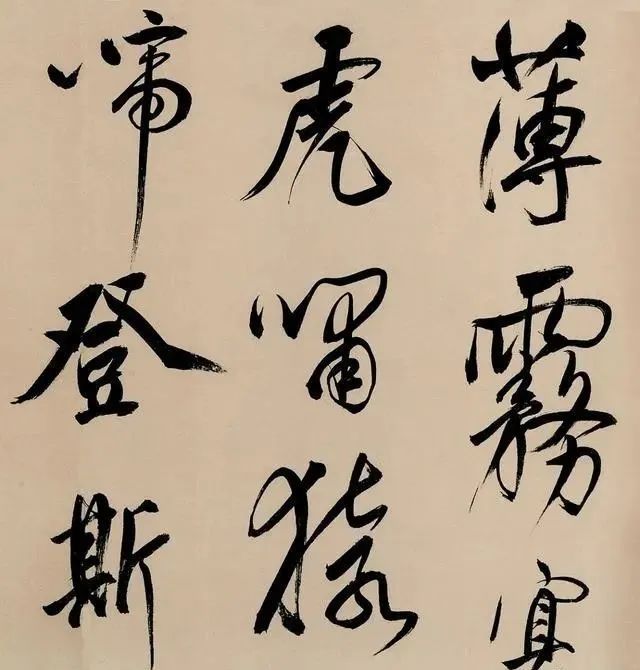 薄霧冥
虎嘯猿
啼登斯